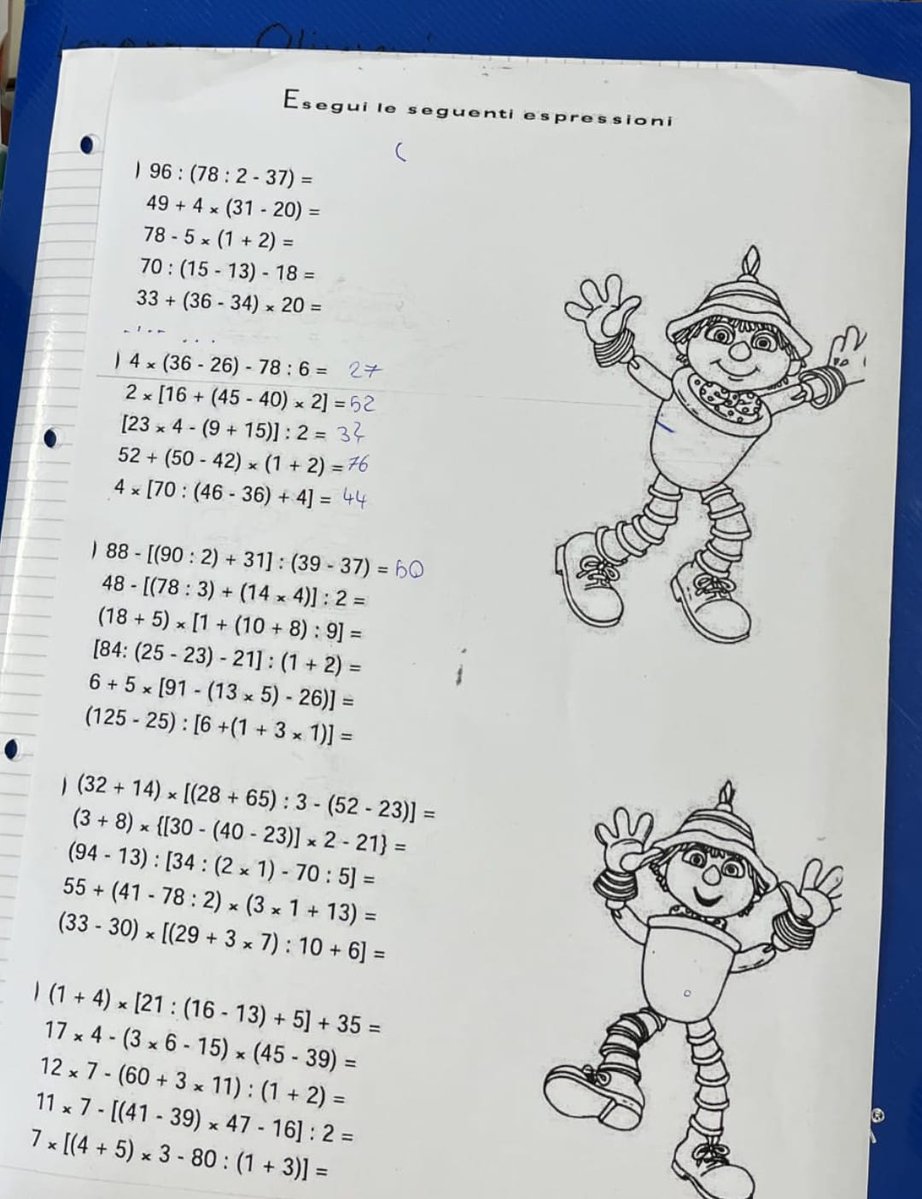 Esegui le seguenti espressioni
) 96 : (78 : 2 - 37) =
49 + 4 × (31 - 20) =
78 - 5 × (1 + 2) =
70 : (15 - 13) - 18 =
33 + (36 - 34) × 20 =
) 4 × (36 - 26) - 78 : 6 = 27
2 × [16 + (45 - 40) × 2] = 52
[23 × 4 - (9 + 15)] : 2 = 34
52 + (50 - 42) × (1 + 2) = 76
4 × [70 : (46 - 36) + 4] = 44
) 88 - [(90 : 2) + 31] : (39 - 37) = 50
48 - [(78 : 3) + (14 × 4)] : 2 =
(18 + 5) × [1 + (10 + 8) : 9] =
[84: (25 - 23) - 21] : (1 + 2) =
6 + 5 × [91 - (13 × 5) - 26)] =
(125 - 25) : [6 +(1 + 3 × 1)] =
) (32 + 14) × [(28 + 65) : 3 - (52 - 23)] =
(3 + 8) × {[30 - (40 - 23)] × 2 - 21} =
(94 - 13) : [34 : (2 × 1) - 70 : 5] =
55 + (41 - 78 : 2) × (3 × 1 + 13) =
(33 - 30) × [(29 + 3 × 7) : 10 + 6] =
) (1 + 4) × [21 : (16 - 13) + 5] + 35 =
17 × 4 - (3 × 6 - 15) × (45 - 39) =
12 × 7 - (60 + 3 × 11) : (1 + 2) =
11 × 7 - [(41 - 39) × 47 - 16] : 2 =
7 × [(4 + 5) × 3 - 80 : (1 + 3)] =